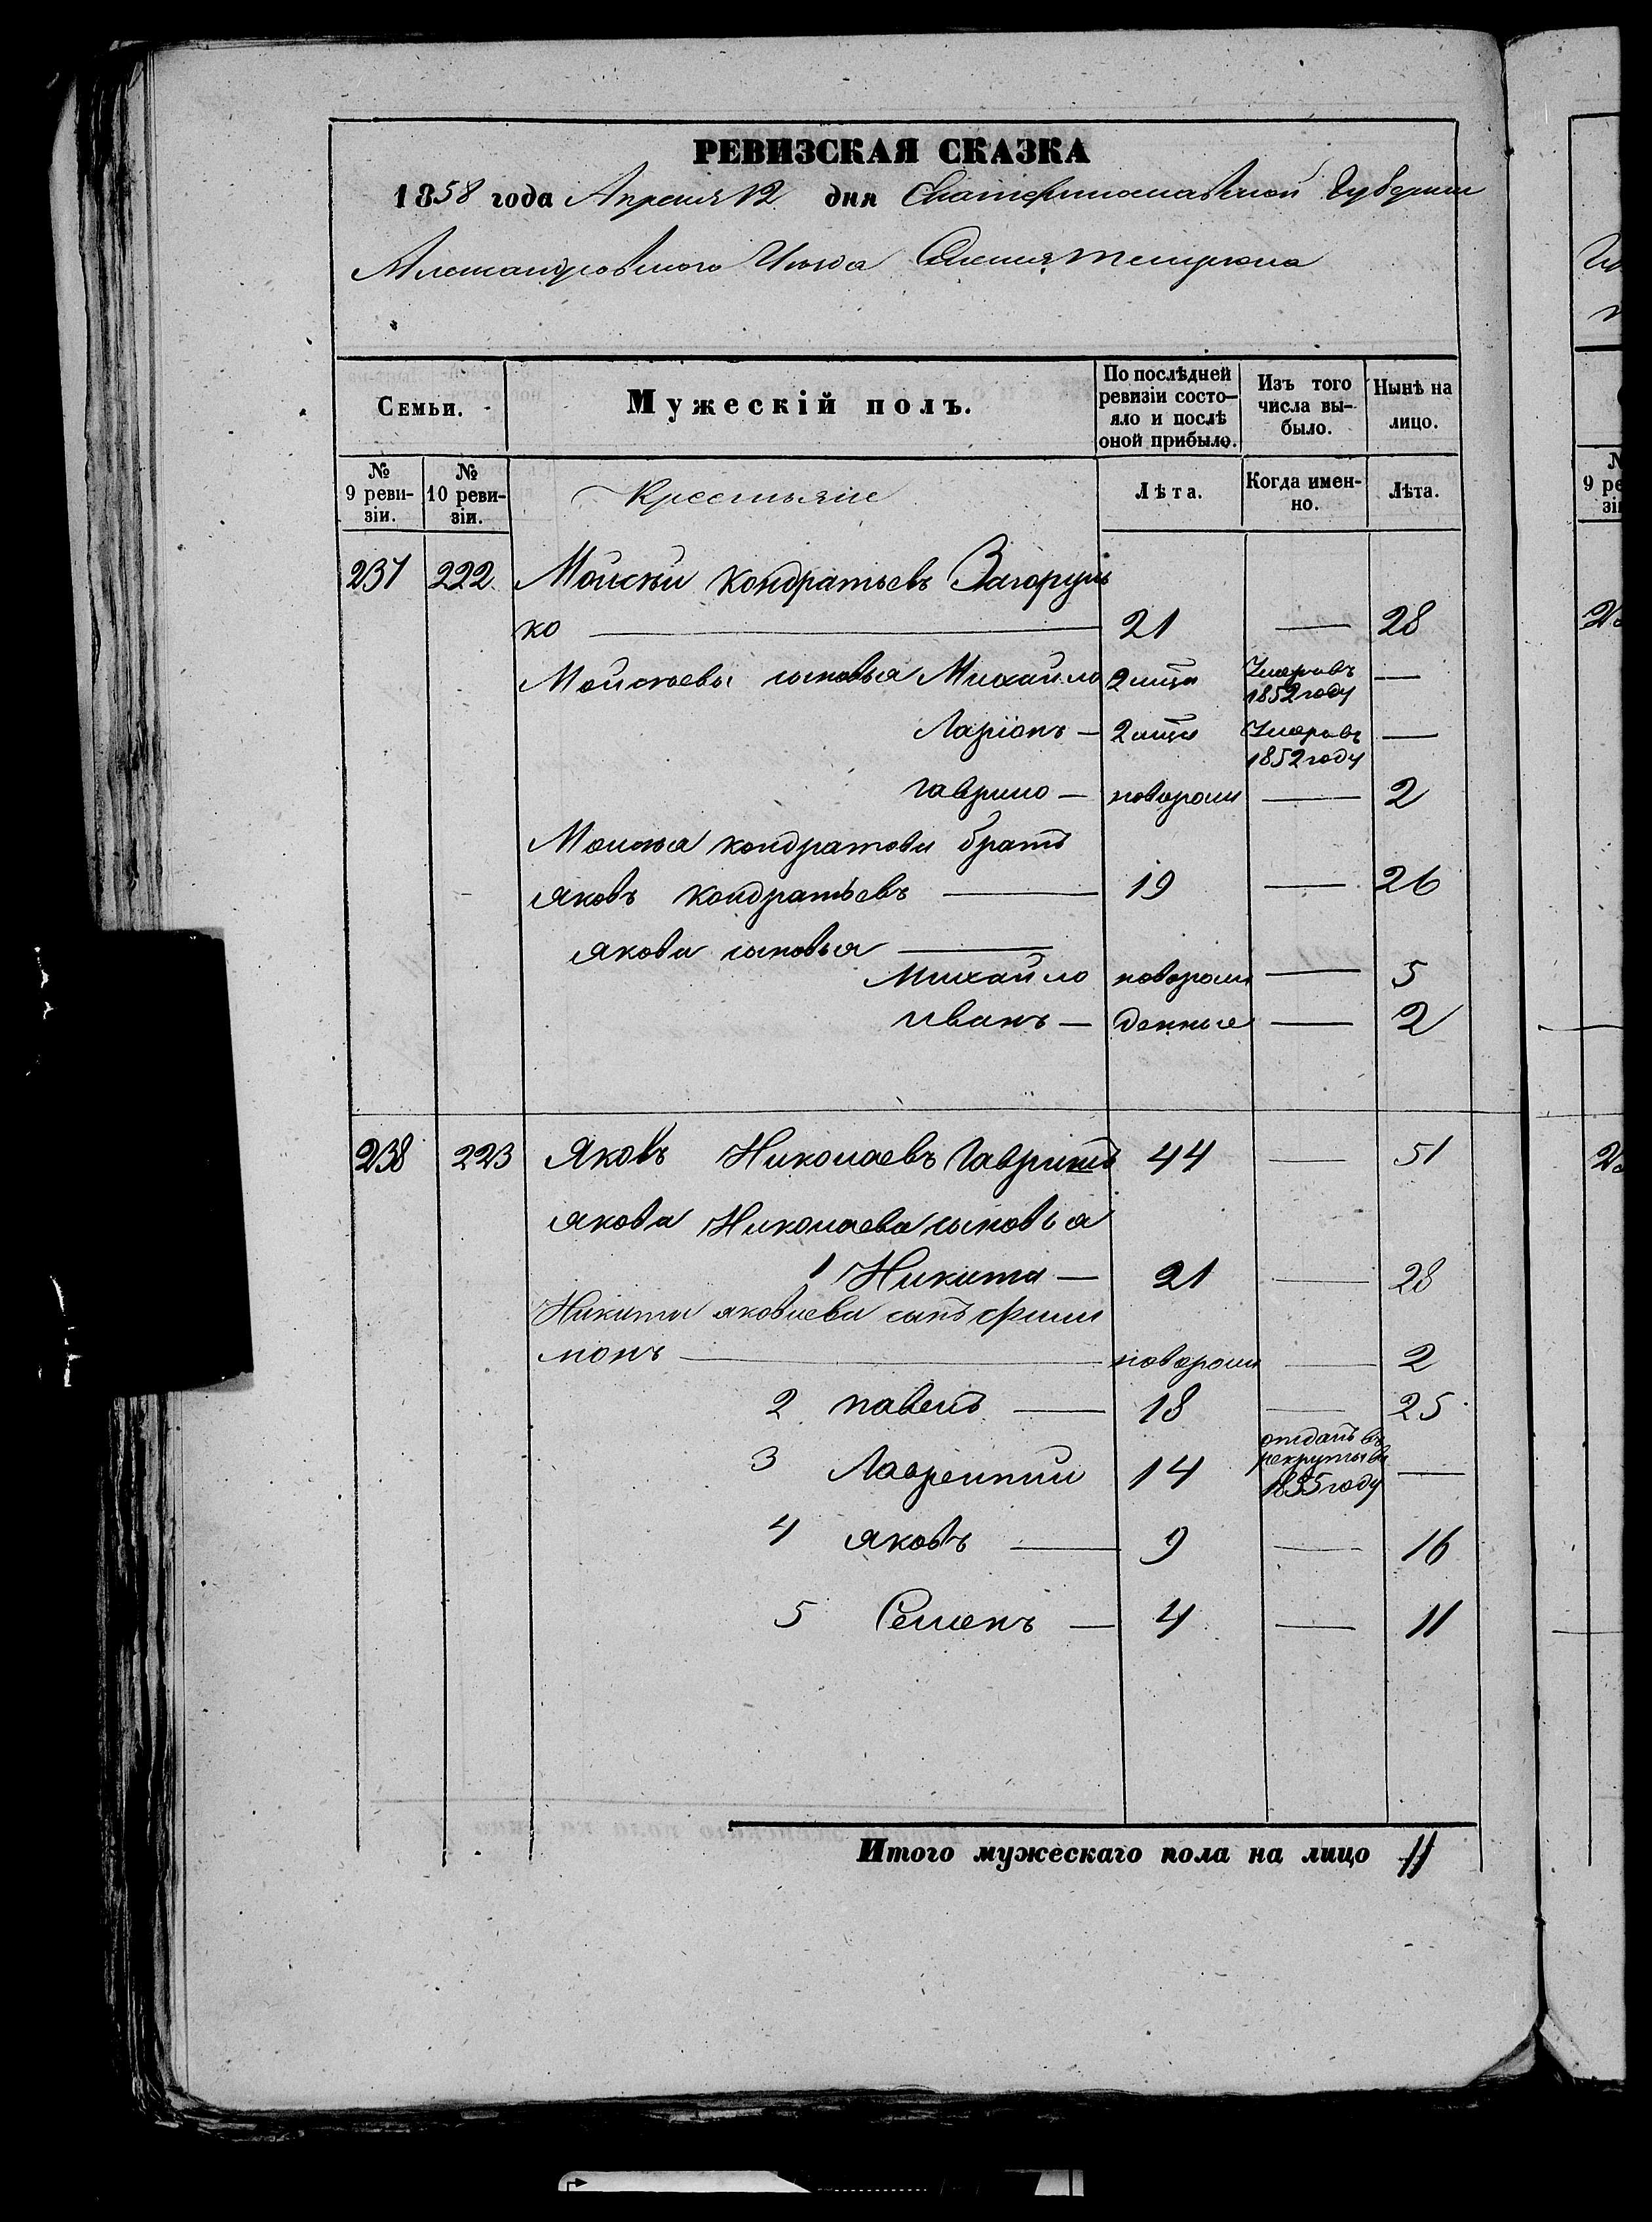 РЕВИЗСКАЯ СКАЗКА
1858 года Апреля 12 дня Екатеринославской Губернии
Александровского Уезда Селения Темрюка
Семьи. Мужескій полъ. По послѣдней ревизіи состояло и послѣ оной прибыло. Изъ того числа выбыло. Нынѣ на лицо.
№ 9 ревизіи. № 10 ревизіи. Крестьяне Лѣта. Когда именно. Лѣта.
237 222 Мойсѣй Кондратьевъ Загоруль
ко — 21 — 28
Мойсѣевы сыновья Михайло 2 мѣця Умеръ въ 1852 году —
Ларіонъ — 2 мѣця Умеръ въ 1852 году —
Гаврило — новорож — 2
Мойсѣя Кондратова братъ
Яковъ Кондратьевъ — 19 — 26
Якова сыновья —
Михайло новорож — 5
Иванъ — денные — 2
238 223 Яковъ Николаевъ 44 — 51
Якова Николаева сыновья
1 Никита — 21 — 28
Никиты Яковлева сынъ Фили
монъ — новорож — 2
2 Павелъ — 18 — 25
3 Лаврентий 14 отданъ въ рекруты въ 1855 году —
4 Яковъ — 9 — 16
5 Семенъ — 4 — 11
Итого мужескаго пола на лицо 11
9 ре